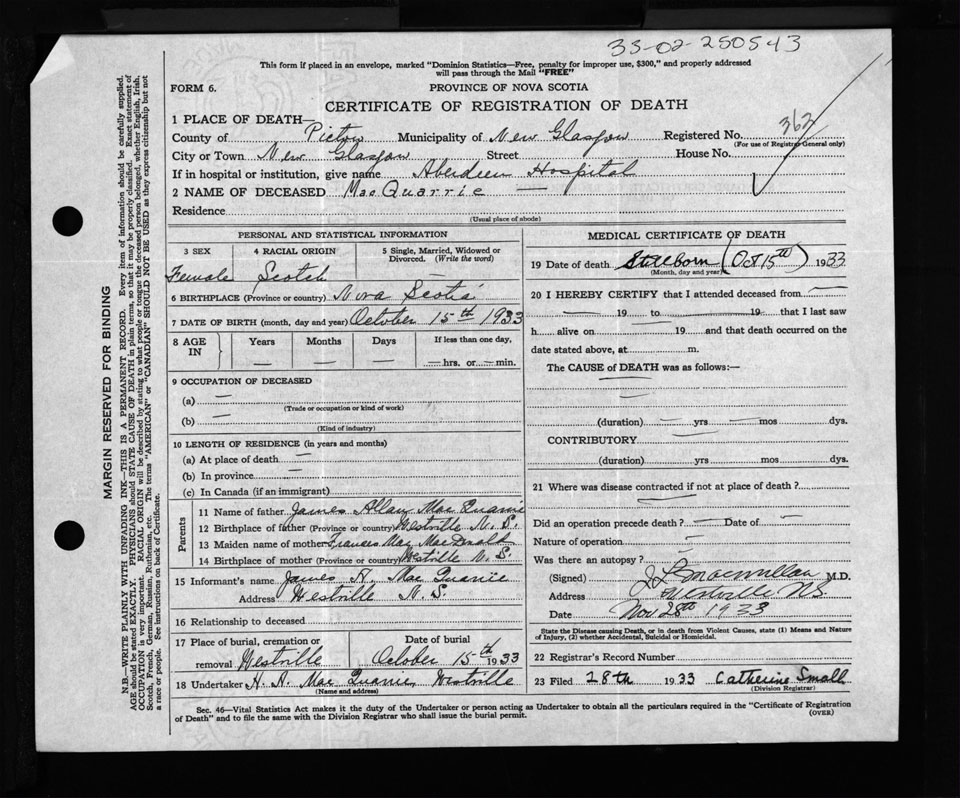 33-02-250543
This form if placed in an envelope, marked "Dominion Statistics—Free, penalty for improper use, $300," and properly addressed
will pass through the Mail "FREE"
FORM 6.
PROVINCE OF NOVA SCOTIA
CERTIFICATE OF REGISTRATION OF DEATH
1 PLACE OF DEATH—
County of Pictou Municipality of New Glasgow Registered No. 363
(For use of Registrar General only)
City or Town New Glasgow Street House No.
If in hospital or institution, give name Aberdeen Hospital
2 NAME OF DECEASED MacQuarrie —
Residence
(Usual place of abode)
PERSONAL AND STATISTICAL INFORMATION
3 SEX 4 RACIAL ORIGIN 5 Single, Married, Widowed or Divorced. (Write the word)
Female Scotch —
6 BIRTHPLACE (Province or country) Nova Scotia
7 DATE OF BIRTH (month, day and year) October 15th 1933
8 AGE IN Years Months Days If less than one day,
— — — — hrs. or — min.
9 OCCUPATION OF DECEASED
(a) —
(Trade or occupation or kind of work)
(b) —
(Kind of industry)
10 LENGTH OF RESIDENCE (in years and months)
(a) At place of death —
(b) In province —
(c) In Canada (if an immigrant)
Parents
11 Name of father James Allan MacQuarrie
12 Birthplace of father (Province or country) Westville N. S.
13 Maiden name of mother Frances May MacDonald
14 Birthplace of mother (Province or country) Westville N. S.
15 Informant's name James A. MacQuarrie
Address Westville N. S.
16 Relationship to deceased
17 Place of burial, cremation or removal Westville Date of burial October 15th 1933
18 Undertaker H. A. MacQuarrie, Westville
(Name and address)
MEDICAL CERTIFICATE OF DEATH
19 Date of death Stillborn (Oct 15th) 1933
(Month, day and year)
20 I HEREBY CERTIFY that I attended deceased from —
— 19 — to — 19 — that I last saw
h alive on — 19 — and that death occurred on
date stated above, at m.
The CAUSE of DEATH was as follows:—
—
—
(duration) — yrs — mos dys.
CONTRIBUTORY —
(duration) yrs mos dys.
21 Where was disease contracted if not at place of death?
—
Did an operation precede death? — Date of —
Nature of operation —
Was there an autopsy? —
(Signed) Macmillan M.D.
Address Westville NS.
Date Nov 28th 1933
State the Disease causing Death, or in death from Violent Causes, state (1) Means and Nature
of Injury, (2) whether Accidental, Suicidal or Homicidal.
22 Registrar's Record Number
23 Filed 28th 1933 Catherine Small
(Division Registrar)
Sec. 46—Vital Statistics Act makes it the duty of the Undertaker or person acting as Undertaker to obtain all the particulars required in the "Certificate of Registration
of Death" and to file the same with the Division Registrar who shall issue the burial permit.
(OVER)
MARGIN RESERVED FOR BINDING
N.B.—WRITE PLAINLY WITH UNFADING INK—THIS IS A PERMANENT RECORD. Every item of information should be carefully supplied.
AGE should be stated EXACTLY. PHYSICIANS should STATE CAUSE OF DEATH in plain terms, so that it may be properly classified. Exact statement of
OCCUPATION is very important. RACIAL ORIGIN will be described by stating to what people or tongue the deceased person belonged, whether English, Irish,
Scotch, French, German, Russian, Ruthenian, etc. The terms "AMERICAN" or "CANADIAN" SHOULD NOT BE USED as they express citizenship but not
a race or people. See instructions on back of Certificate.